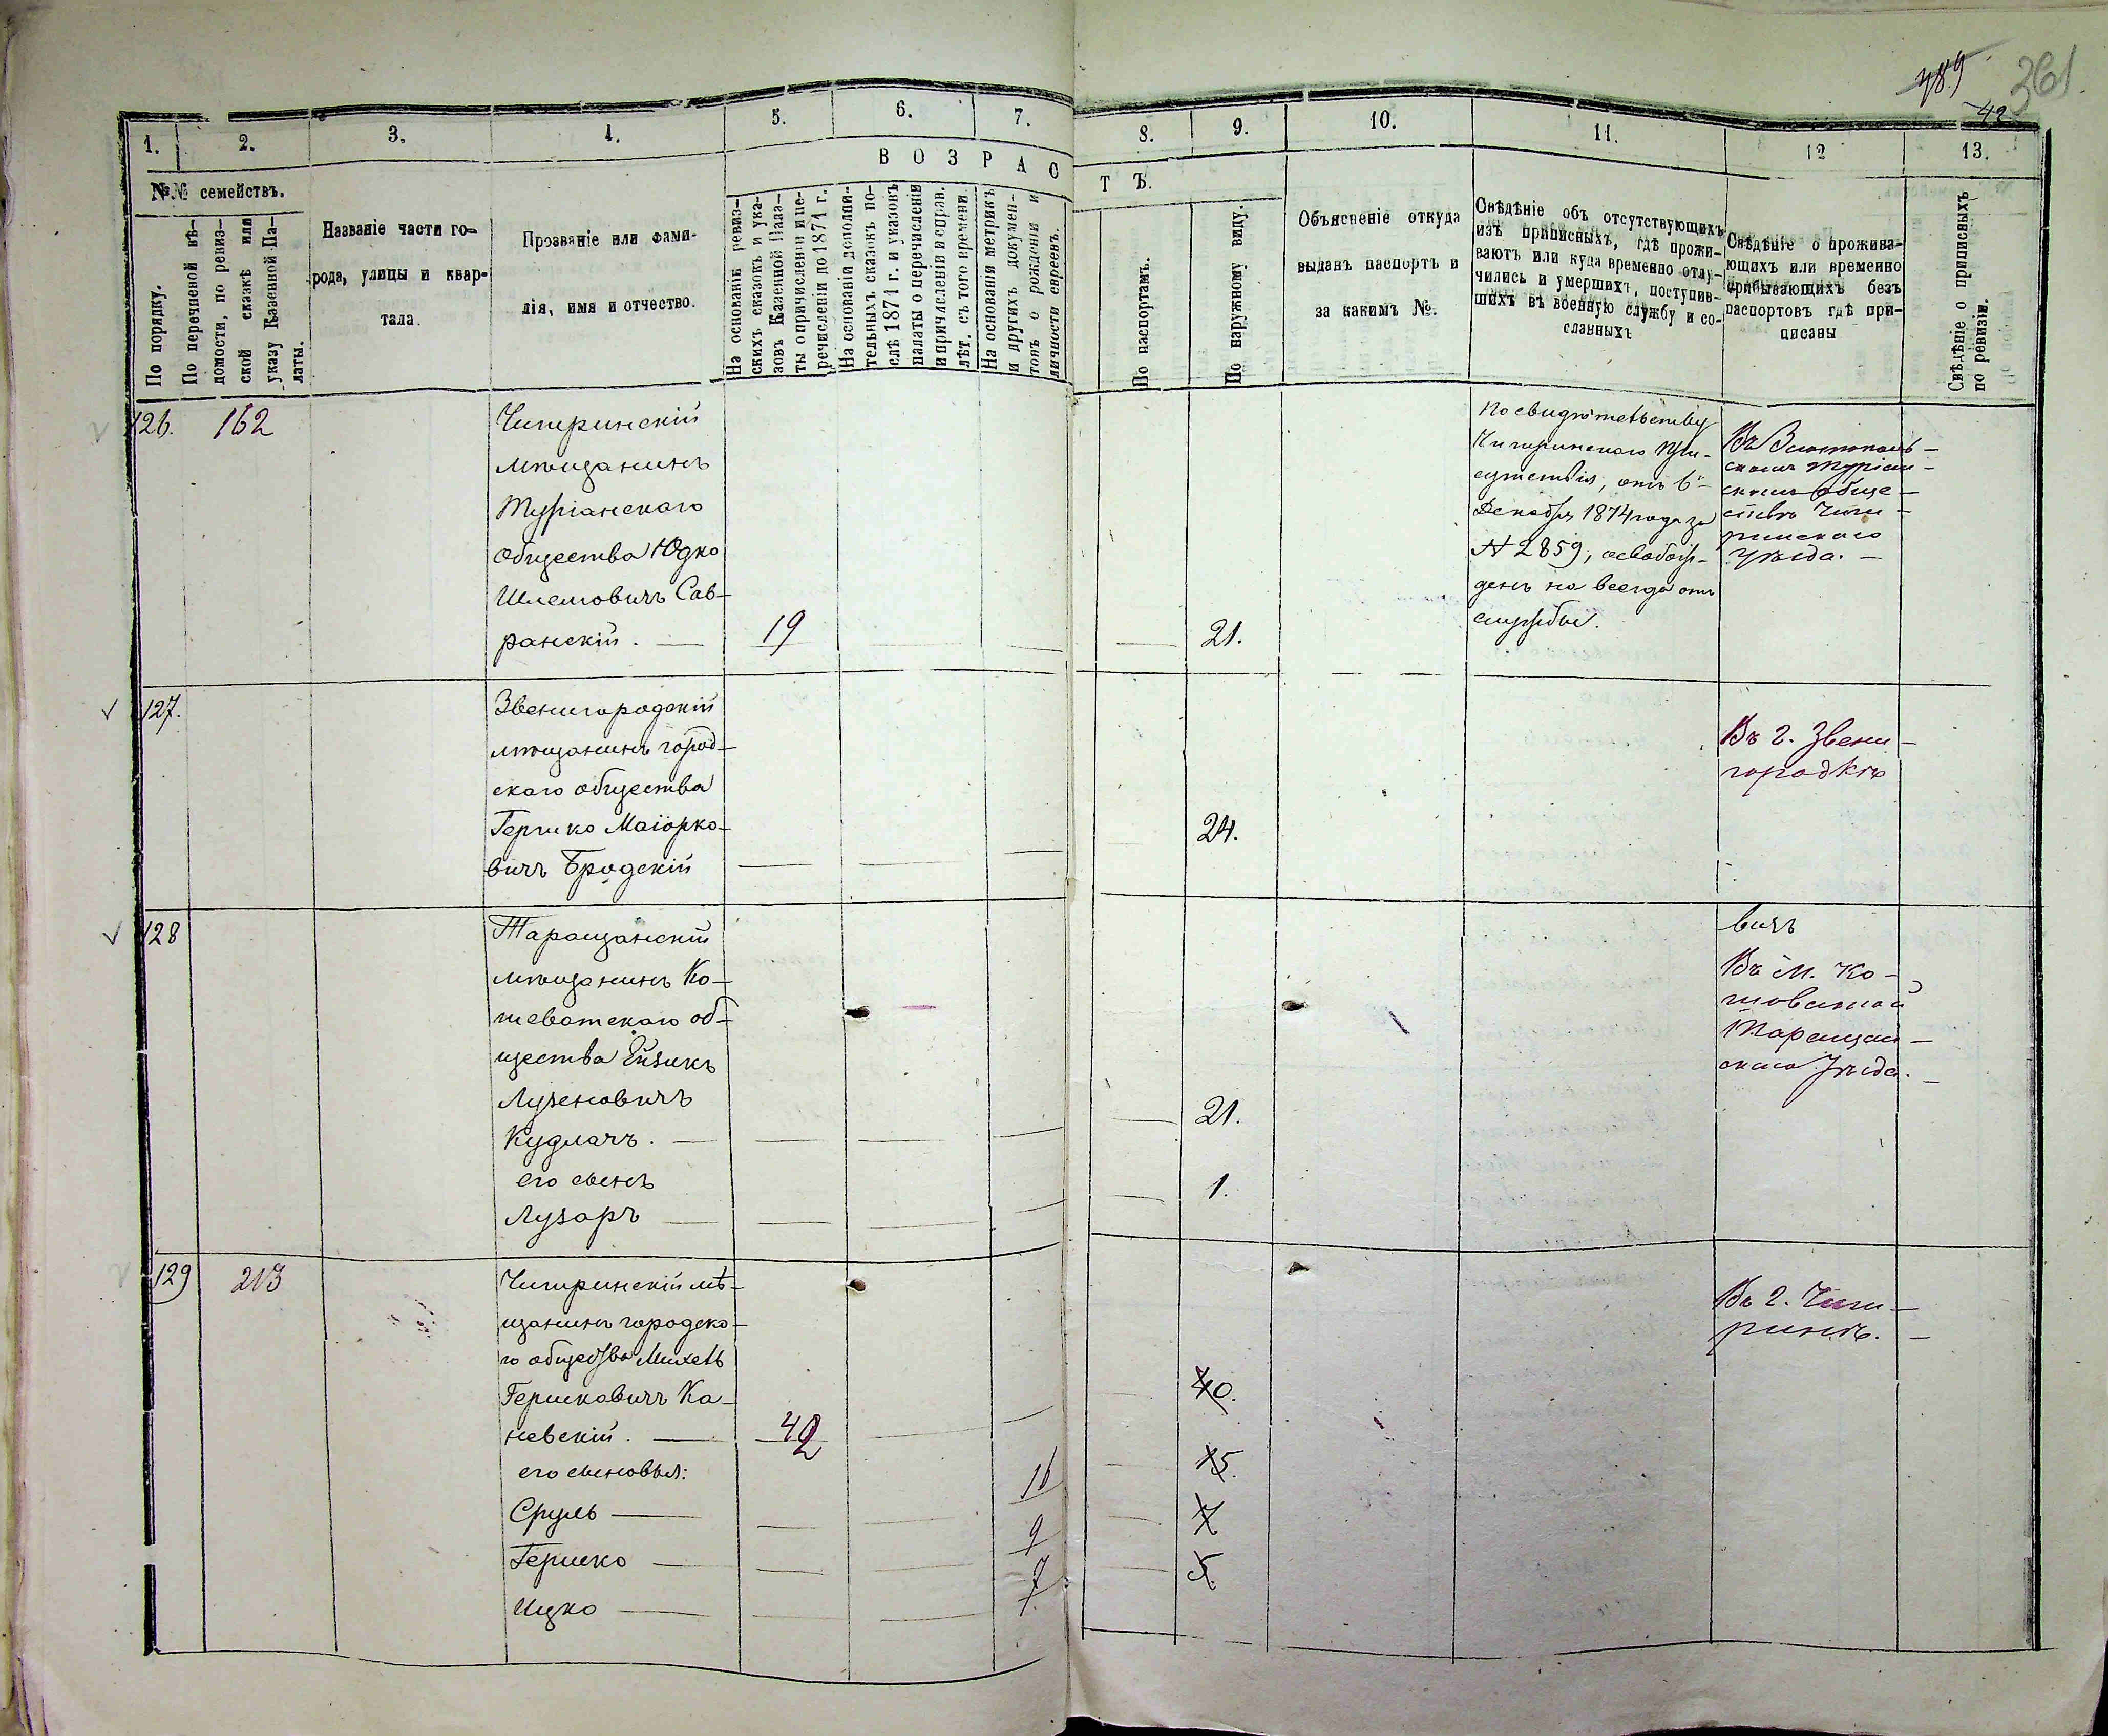 361
42
1.
2.
3.
4.
5.
6.
7.
8.
9.
10.
11.
12
13.
ВОЗРАСТЪ.
№№ семействъ.
По порядку.
По перечневой вѣ-
домости, по ревиз-
ской сказкѣ или
указу Казенной Па-
латы.
Названіе части го-
рода, улицы и квар-
тала.
Прозваніе или фами-
лія, имя и отчество.
На основанія ревиз-
скихъ сказокъ и ука-
зовъ Казенной Пала-
ты о причисленіи и пе-
речисленіи до 1874 г.
На основаніи дополни-
тельныхъ сказокъ по-
слѣ 1874 г. и указовъ
палаты о перечисленіи
и причисленіи и справ.
лѣт. съ того времени.
На основаніи метрикъ
и другихъ докумен-
товъ о рожденіи и
личности евреевъ.
По паспортамъ.
По наружному виду.
Объясненіе откуда
выданъ паспортъ и
за какимъ №.
Свѣдѣніе объ отсутствующихъ
изъ приписныхъ, гдѣ прожи-
ваютъ или куда временно отлу-
чились и умершихъ, поступив-
шихъ въ военную службу и со-
сланныхъ
Свѣдѣніе о прожива-
ющихъ или временно
прибывающихъ безъ
паспортовъ гдѣ при-
писаны
Свѣдѣніе о приписныхъ
по ревизіи.
126.
162
Чигиринскій
мѣщанинъ
Туріанскаго
общества Юдко
Шлемовичъ Сав-
ранскій.
19
21.
По свидѣтельству
Чигиринскаго При-
сутствія, отъ 6го
Декабря 1874 года за
№ 2859, освобож-
денъ на всегда отъ
службы.
скомъ Туріан-
скомъ обще-
ствѣ Чиги-
ринскаго
уѣзда.
127.
Звенигородскій
мѣщанинъ город-
скаго общества
Гершко Маіорко-
вичъ Бродскій
24.
Въ г. Звени-
городкѣ
128
Таращанскій
мѣщанинъ Ко-
шеватскаго об-
щества Ейзикъ
Лузеновичъ
Кудлачъ.
21.
его сынъ
Лузаръ
1.
вичъ
Въ м. Ко-
шоватой
Таращан-
скаго Уѣзда.
129
213
Чигиринскій мѣ-
щанинъ городско-
го общества Михель
Гершковичъ Ка-
невскій.
42
40.
его сыновья:
Сруль
16
15.
Гершко
9
7
Ицко
7
5.
Въ г. Чиги-
ринѣ.